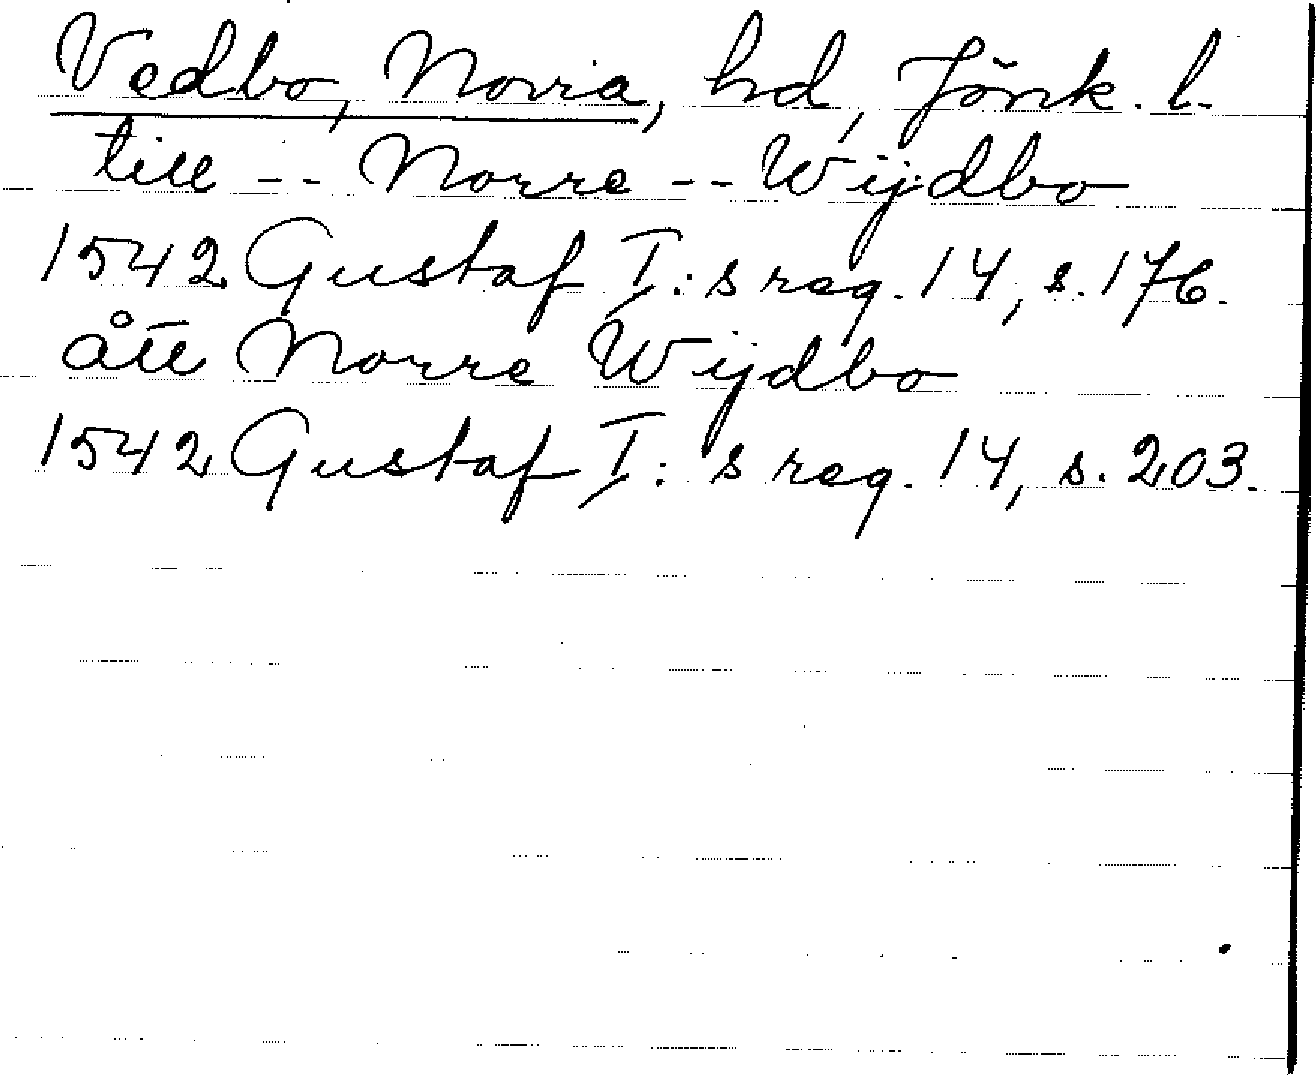 Vedbo, Norra, hd, Jönk. l.
till -- Norre -- Wijdbo
1542 Gustaf I:s reg. 14, s. 176.
ått Norre Wijdbo
1542 Gustaf I:s reg. 14, s. 203.